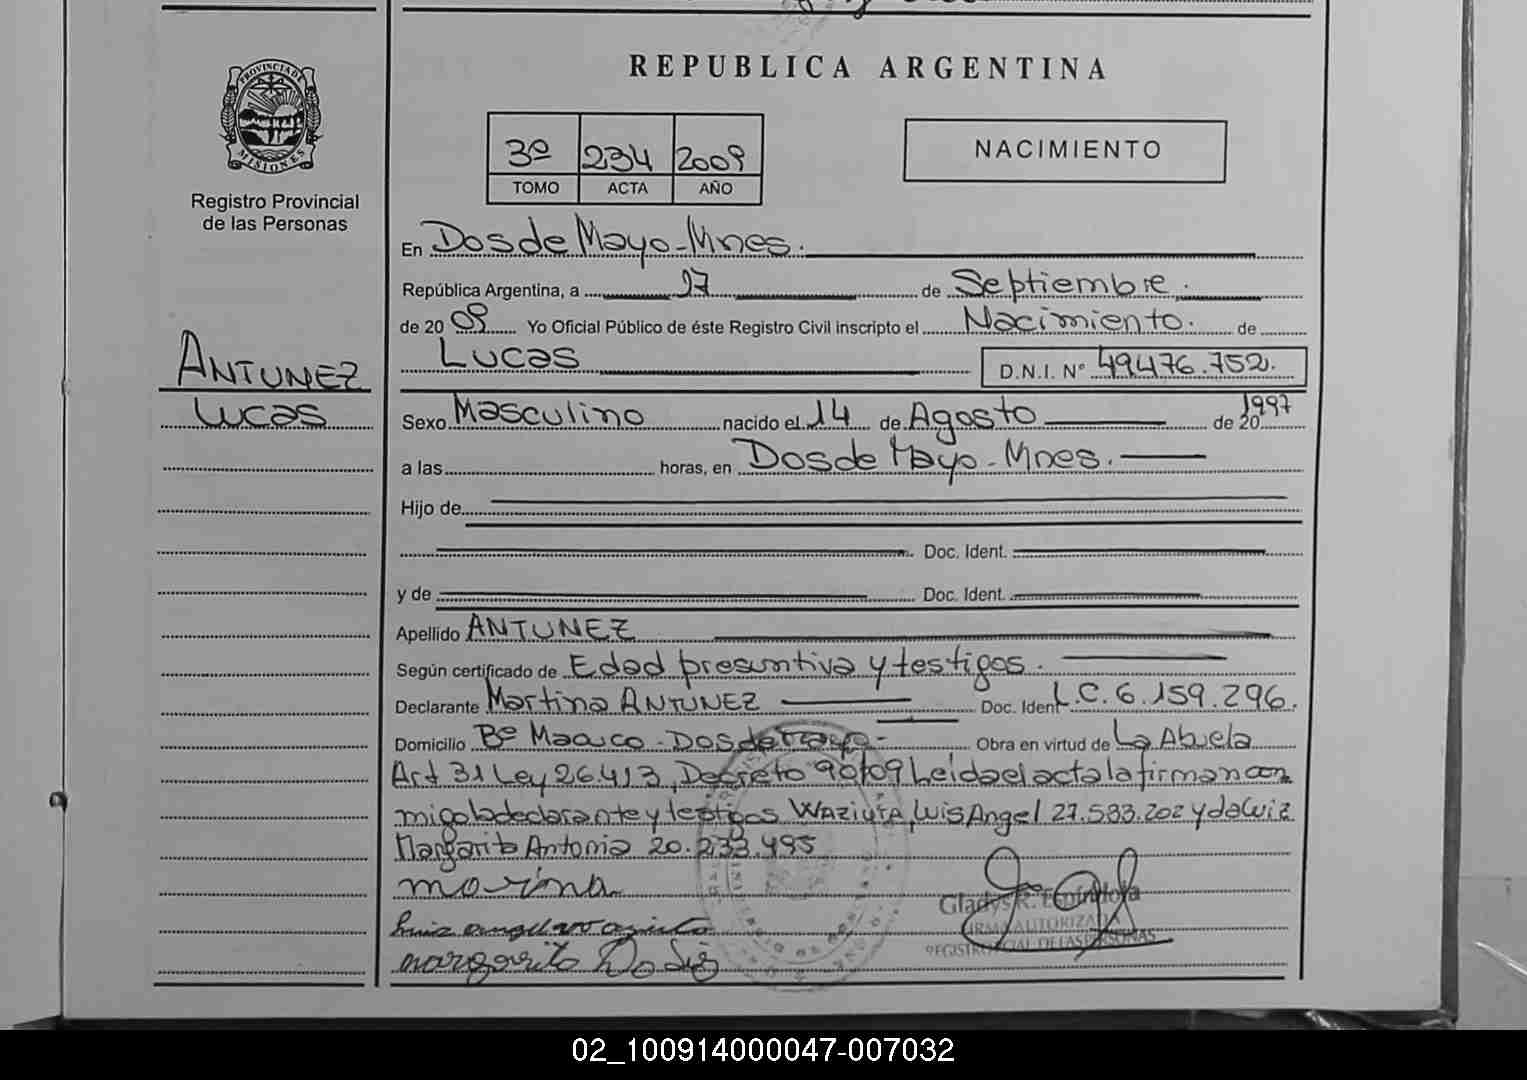 REPUBLICA ARGENTINA
PROVINCIA DE
MISIONES
Registro Provincial
de las Personas
3º 234 2009
TOMO ACTA AÑO
NACIMIENTO
En Dos de Mayo - Mnes.
República Argentina, a 17 de Septiembre.
de 20 09 Yo Oficial Público de éste Registro Civil inscripto el Nacimiento. de
Lucas D.N.I. Nº 49476.752.
ANTUNEZ
Lucas
Sexo Masculino nacido el 14 de Agosto de 20 1997
a las horas, en Dos de Mayo - Mnes.
Hijo de
Doc. Ident.
y de Doc. Ident.
Apellido ANTUNEZ
Según certificado de Edad presuntiva y testigos.
Declarante Martina ANTUNEZ Doc. Ident L.C. 6.159.296.
Domicilio Bº - Dos de Mayo - Obra en virtud de La Abuela
Art 31 Ley 26.413, Decreto 90/09 Leida el acta la firman con
migo la declarante y testigos Luis Angel 27.583.202 y
Margarita Antonia 20.233.495
Gladys R. Espíndola
FIRMA AUTORIZADA
REGISTRO PROVINCIAL DE LAS PERSONAS
margarita
02_100914000047-007032